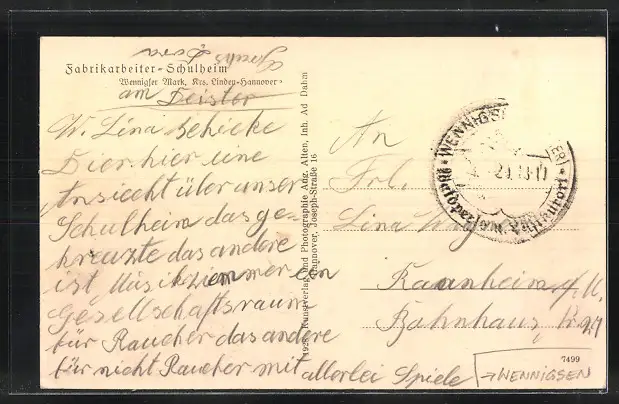 Gruss Dora
Fabrikarbeiter-Schulheim
Wennigser Mark, Krs. Linden-Hannover
am Deister
W. Lina schicke
Dier hier eine
Ansicht über unser
Schulheim das ge-
kreuzte das andere
ist Musikzimmer ein
Gesellschaftsraum
für Raucher das andere
für nicht Raucher mit allerlei Spiele
Kunstverlag und Photographie Aug. Alten, Inh. Ad Dahm
Hannover, Joseph-Straße 16
An
Frl.
Lina
Bahnhaus
WENNIGSEN
7499
→WENNIGSEN